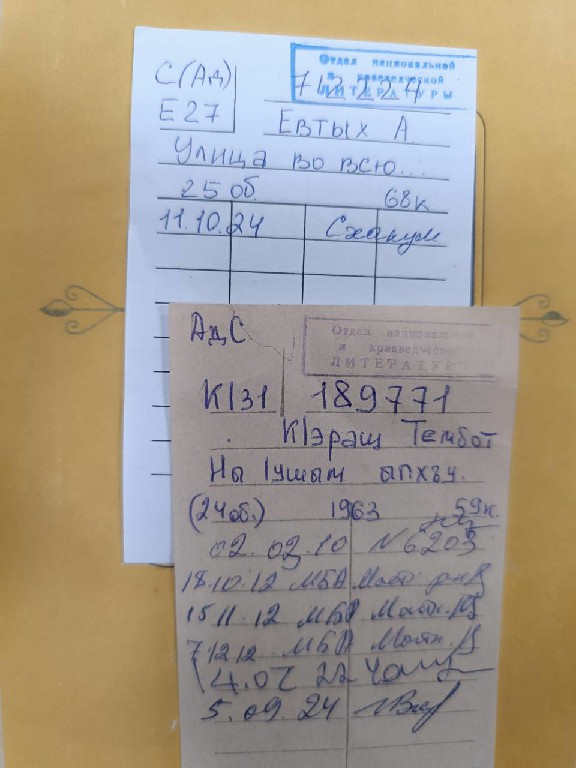 Отдел национальной
и краеведческой
ЛИТЕРАТУРЫ
С(Ад)
712227
Е27
Евтых А.
Улица во всю...
25 об. 68к
11.10.24 Схакум
АдС
Отдел национальной
и краеведческой
ЛИТЕРАТУРЫ
КӀ31 189771
КӀэращ Тембот
Ны Ӏушым апхъу.
(24об.) 1963 59к.
02.03.10 N6203
18.10.12 МБА
15.11.12 МБА
7 12 12 МБА
14.07 22
5.09.24